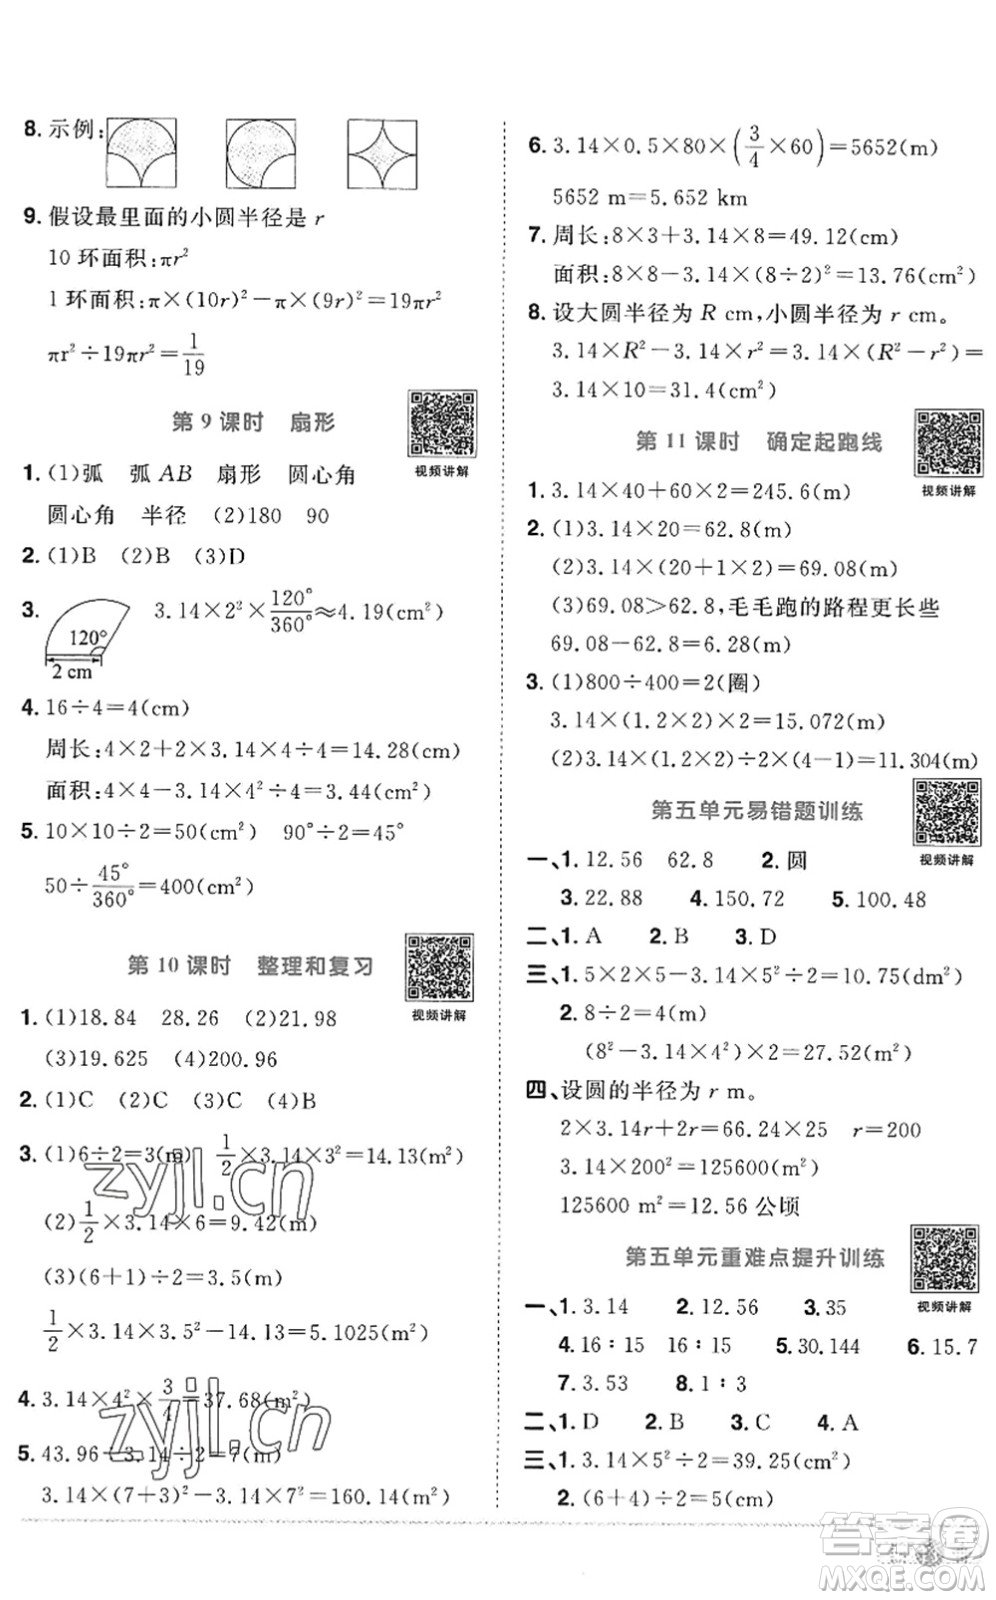 8. 示例:
9. 假设最里面的小圆半径是 r
10 环面积:πr²
1 环面积:π×(10r)²－π×(9r)²＝19πr²
πr²÷19πr²＝1/19
第 9 课时　扇形
视频讲解
1. (1)弧　弧 AB　扇形　圆心角
圆心角　半径　(2)180　90
2. (1)B　(2)B　(3)D
3. 120°　2 cm　3.14×2²×120°/360°≈4.19(cm²)
4. 16÷4＝4(cm)
周长:4×2＋2×3.14×4÷4＝14.28(cm)
面积:4×4－3.14×4²÷4＝3.44(cm²)
5. 10×10÷2＝50(cm²)　90°÷2＝45°
50÷45°/360°＝400(cm²)
第 10 课时　整理和复习
视频讲解
1. (1)18.84　28.26　(2)21.98
(3)19.625　(4)200.96
2. (1)C　(2)C　(3)C　(4)B
3. (1)6÷2＝3(m)　1/2×3.14×3²＝14.13(m²)
(2)1/2×3.14×6＝9.42(m)
(3)(6＋1)÷2＝3.5(m)
1/2×3.14×3.5²－14.13＝5.1025(m²)
4. 3.14×4²×3/4＝37.68(cm²)
5. 43.96÷3.14÷2＝7(m)
3.14×(7＋3)²－3.14×7²＝160.14(m²)
6. 3.14×0.5×80×(3/4×60)＝5652(m)
5652 m＝5.652 km
7. 周长:8×3＋3.14×8＝49.12(cm)
面积:8×8－3.14×(8÷2)²＝13.76(cm²)
8. 设大圆半径为 R cm,小圆半径为 r cm。
3.14×R²－3.14×r²＝3.14×(R²－r²)＝
3.14×10＝31.4(cm²)
第 11 课时　确定起跑线
视频讲解
1. 3.14×40＋60×2＝245.6(m)
2. (1)3.14×20＝62.8(m)
(2)3.14×(20＋1×2)＝69.08(m)
(3)69.08＞62.8,毛毛跑的路程更长些
69.08－62.8＝6.28(m)
3. (1)800÷400＝2(圈)
3.14×(1.2×2)×2＝15.072(m)
(2)3.14×(1.2×2)÷2×(4－1)＝11.304(m)
第五单元易错题训练
视频讲解
一、1. 12.56　62.8　2. 圆
3. 22.88　4. 150.72　5. 100.48
二、1. A　2. B　3. D
三、1. 5×2×5－3.14×5²÷2＝10.75(dm²)
2. 8÷2＝4(m)
(8²－3.14×4²)×2＝27.52(m²)
四、设圆的半径为 r m。
2×3.14r＋2r＝66.24×25　r＝200
3.14×200²＝125600(m²)
125600 m²＝12.56 公顷
第五单元重难点提升训练
视频讲解
一、1. 3.14　2. 12.56　3. 35
4. 16∶15　16∶15　5. 30.144　6. 15.7
7. 3.53　8. 1∶3
二、1. D　2. B　3. C　4. A
三、1. 3.14×5²÷2＝39.25(cm²)
2. (6＋4)÷2＝5(cm)
zyjl.cn
zyjl.cn
答案圈
MXQE.COM